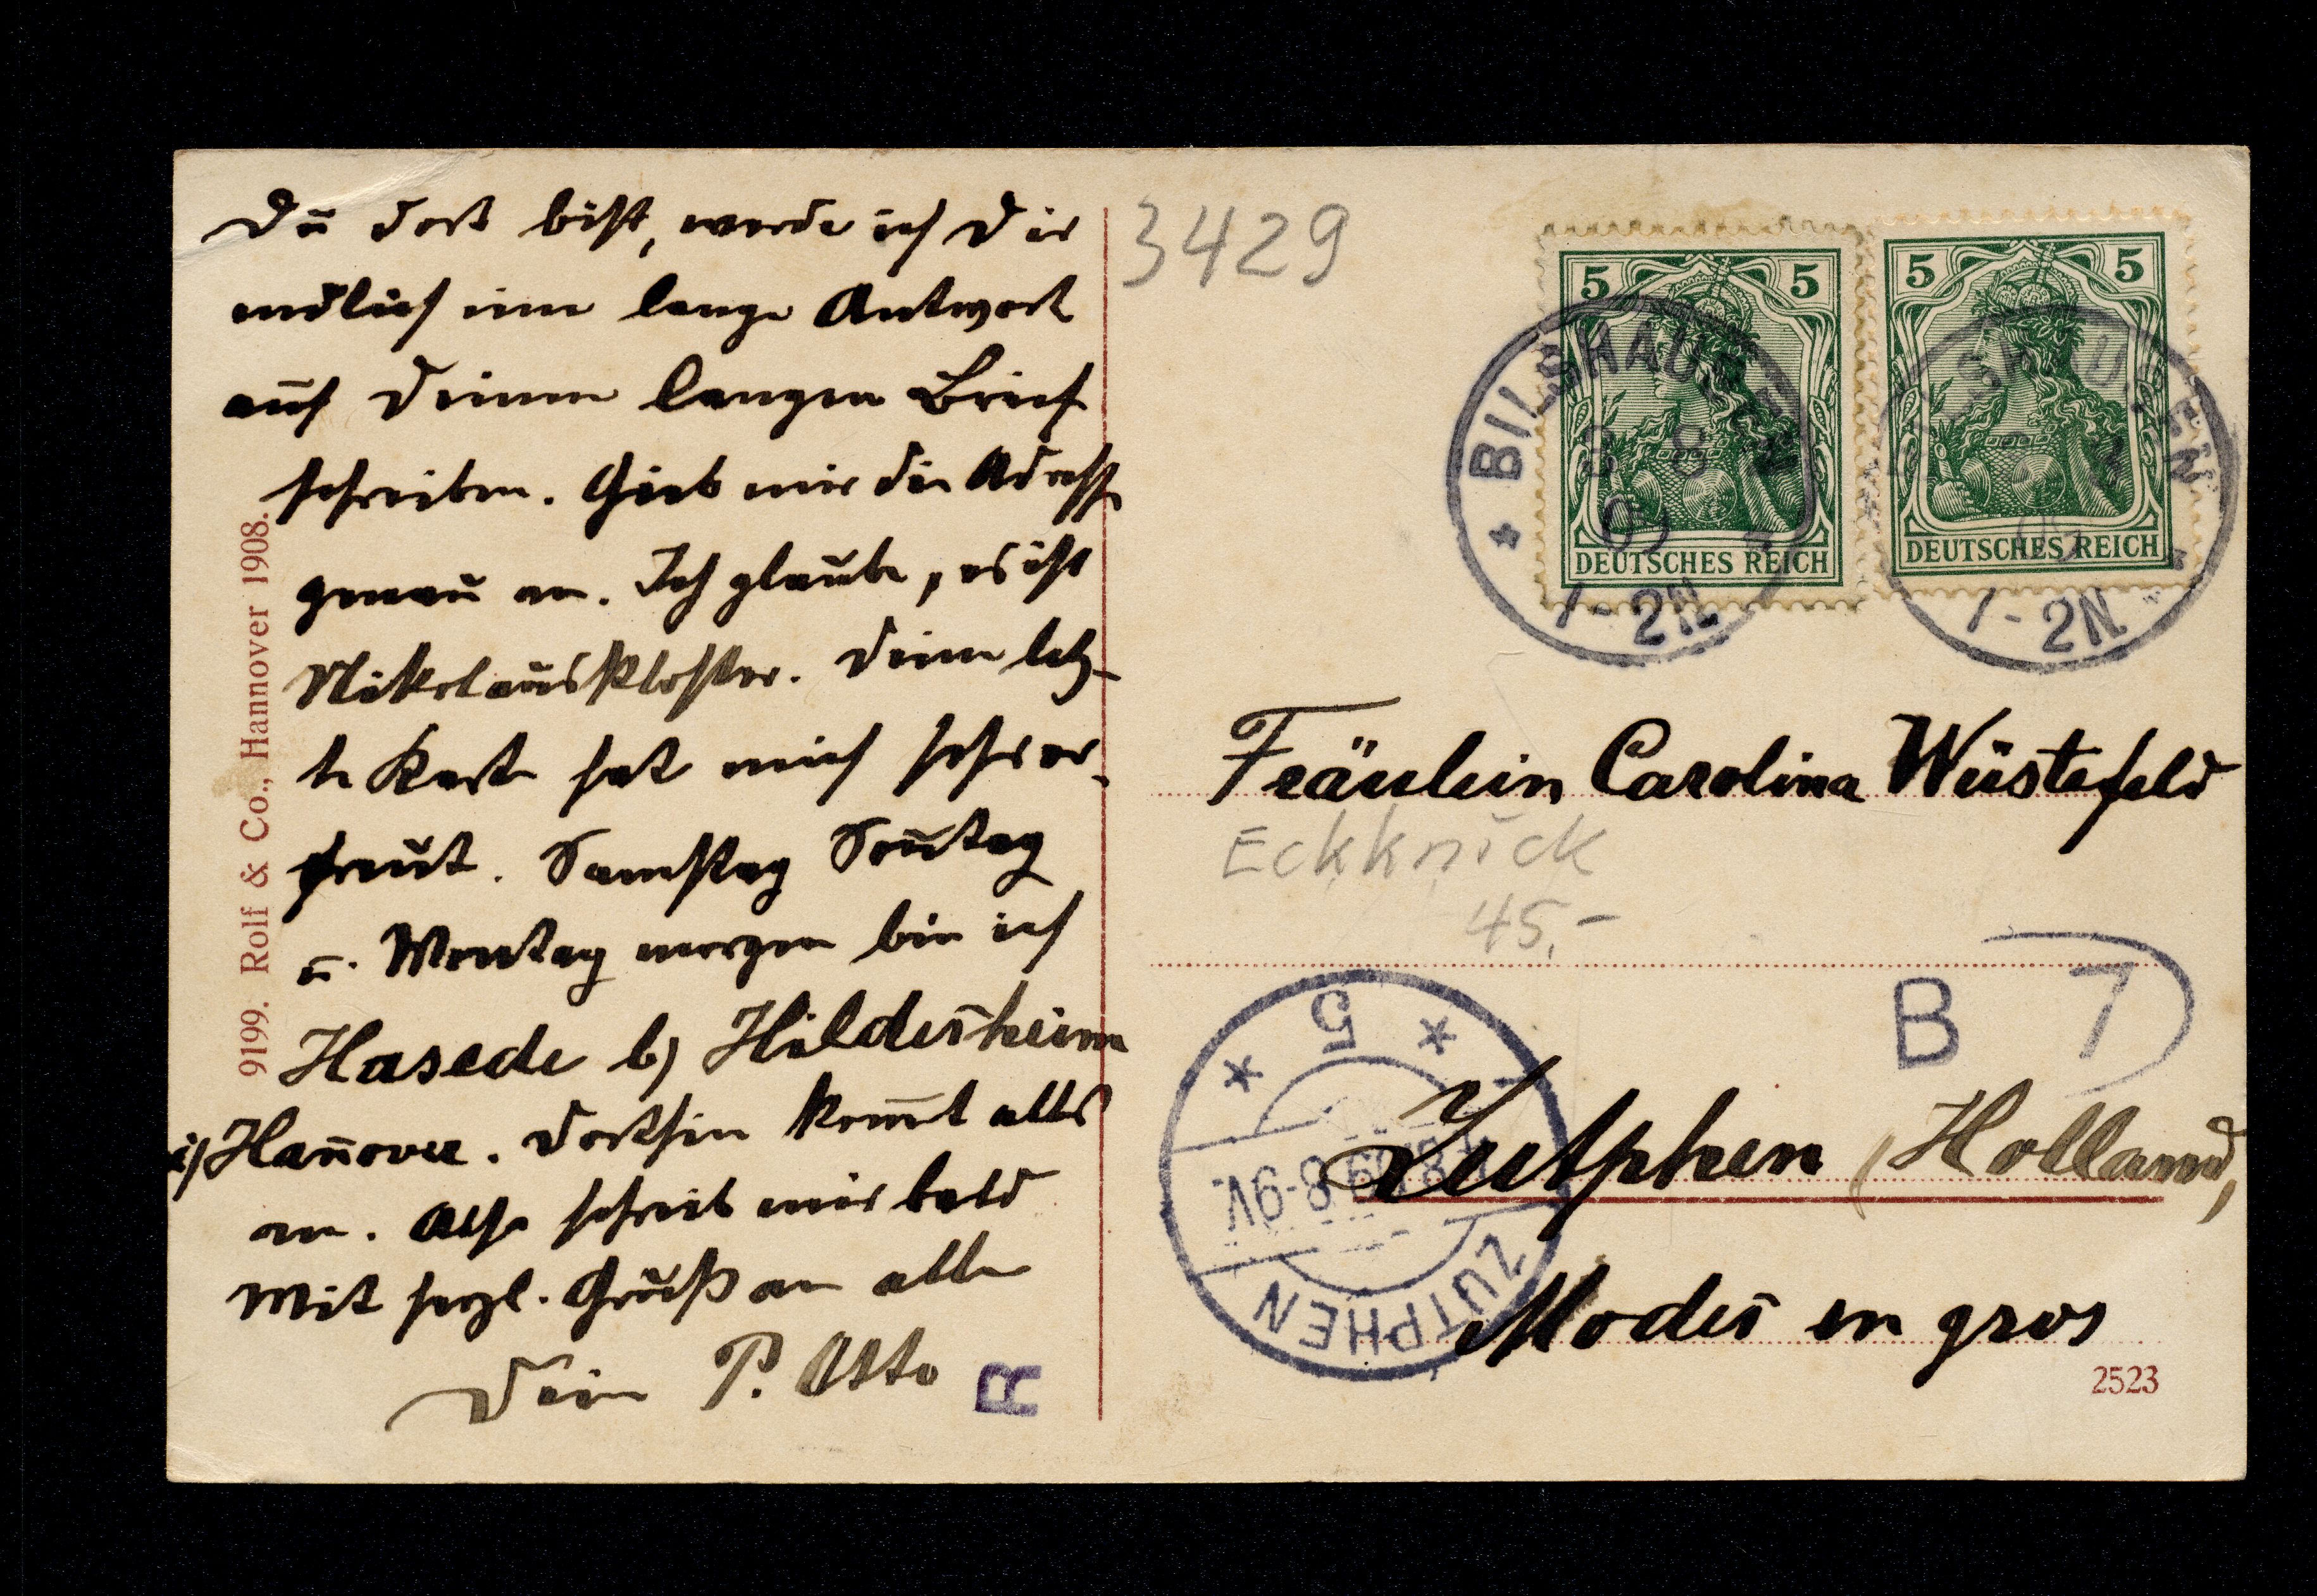 Du dort bist, werde ich Dir
endlich eine lange Antwort
auf Deinen langen Brief
schreiben. Gieb mir die Adresse
genau an. Ich glaube, es ist
Nikolauskloster. Deine letz-
te Karte hat mich sehr er-
freut. Samstag Soñtag
u. Montag morgen bin ich
Hasede b) Hildesheim
i) Hañover. Dorthin kom̃t alles
an. Also schreib mir bald
Mit herzl. Gruß an alle
Dein P. Otto
R
9199. Rolf & Co., Hannover 1908.
3429
5 5
DEUTSCHES REICH
5 5
DEUTSCHES REICH
* BILSHAUSEN *
8
09
1-2N
BILSHAUSEN *
1-2N
Fräulein Carolina Wüstefeld
Eckknick
45,-
B 7
* 5 *
8-9V.
ZUTPHEN
Zutphen (Holland)
Modes en gros
2523